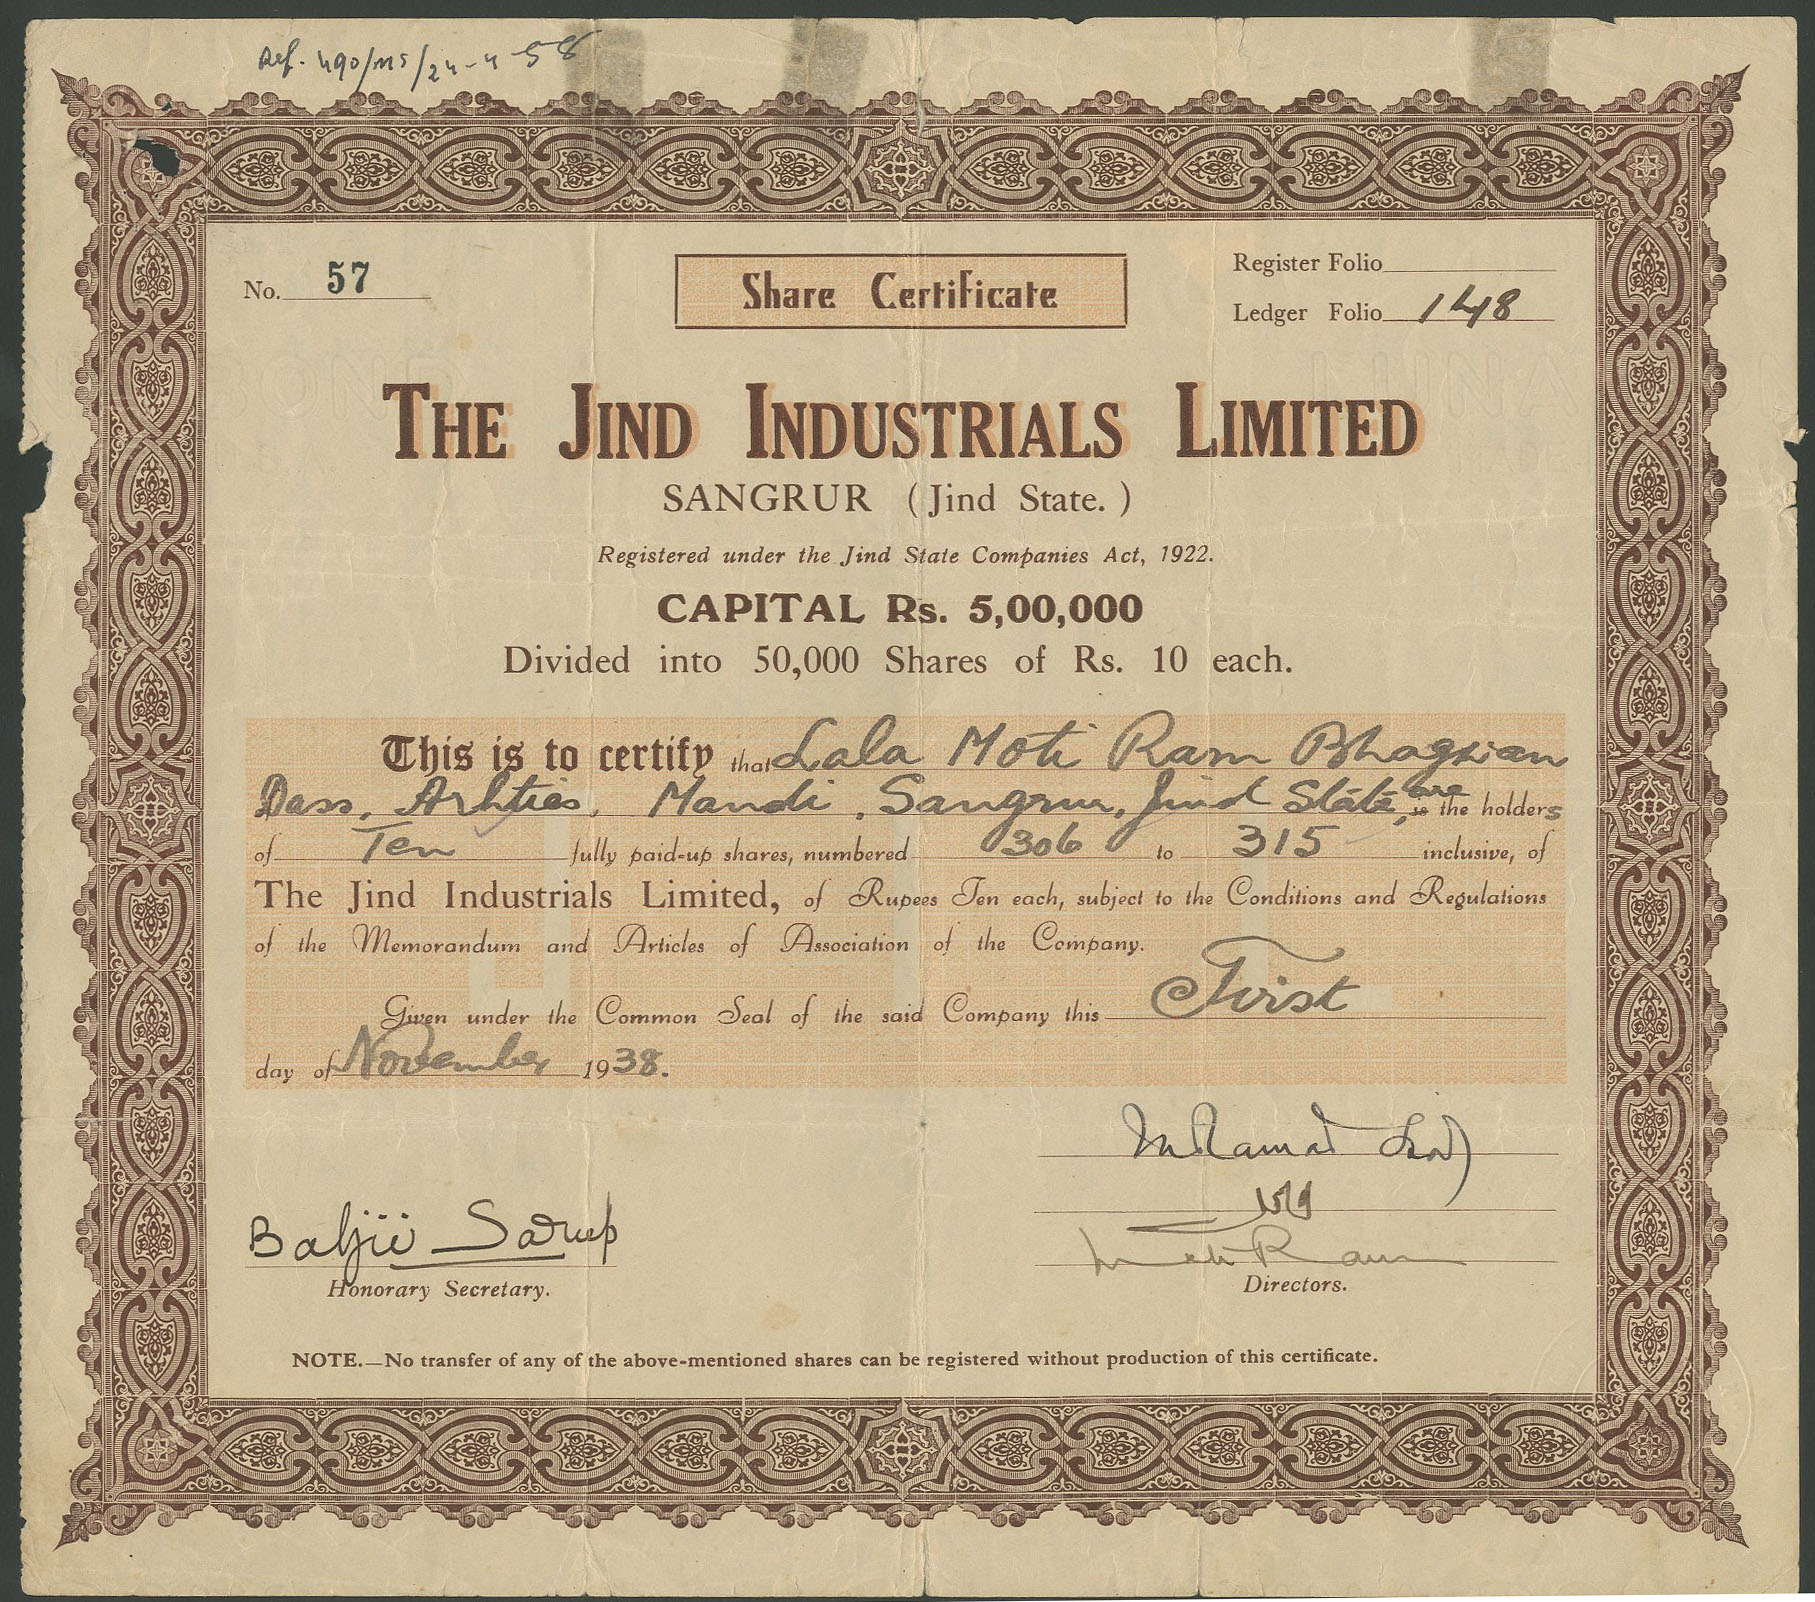 Ref. 490/MS/24-4-58
No. 57
Share Certificate
Register Folio
Ledger Folio 148
THE JIND INDUSTRIALS LIMITED
SANGRUR (Jind State.)
Registered under the Jind State Companies Act, 1922.
CAPITAL Rs. 5,00,000
Divided into 50,000 Shares of Rs. 10 each.
This is to certify that Lala Moti Ram Bhagwan
Dass, Arhties, Mandi, Sangrur, Jind State, are is the holders
of Ten fully paid-up shares, numbered 306 to 315 inclusive, of
The Jind Industrials Limited, of Rupees Ten each, subject to the Conditions and Regulations
of the Memorandum and Articles of Association of the Company.
Given under the Common Seal of the said Company this First
day of November 1938.
Baljit Sarup
Honorary Secretary.
Moti Ram
Directors.
NOTE.—No transfer of any of the above-mentioned shares can be registered without production of this certificate.